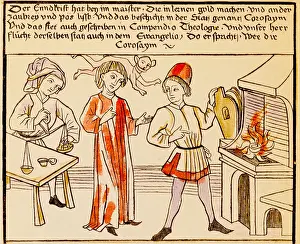 Der Enndkrist hat bey im maister. Die in leren gold machen vnd ander
zaubrey vnd pos list. Vnd das beschiht in der Stat genant Corosaym
Vnd das stet auch geschriben in Compendio Theologie. Vnd vnser herr
flucht derselben stat auch in dem Ewangelio. Do er spricht. Wee dir
Corosaym